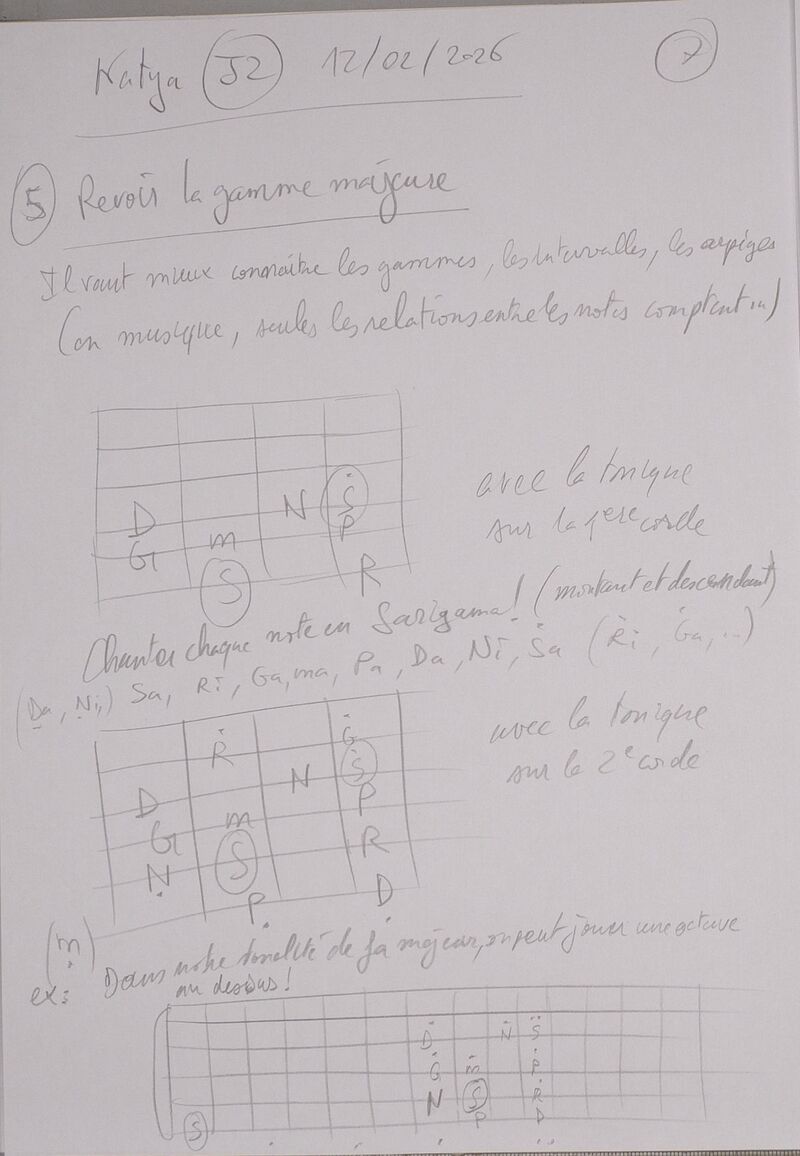 Natya J2 12/02/2026 7
5 Revoir la gamme majeure
Il vaut mieux connaître les gammes, les intervalles, les arpèges
(en musique, seules les relations entre les notes comptent...)
avec la tonique
sur la 1ere corde
D N Ṡ
G m P
S R
Chanter chaque note en Sarigama! (montant et descendant)
(Ḍa, Ṇi,) Sa, Ri, Ga, ma, Pa, Da, Ni, Ṡa (Ṙi, Ġa, ..)
avec la tonique
sur la 2e corde
Ṙ Ġ
N Ṡ
D P
G m R
Ṇ S
P̣ Ḍ
(ṃ)
ex: Dans notre tonalité de fa majeur, on peut jouer une octave
au dessus!
Ḋ Ṅ S̈
Ġ ṁ Ṗ
N Ṡ Ṙ
S P D